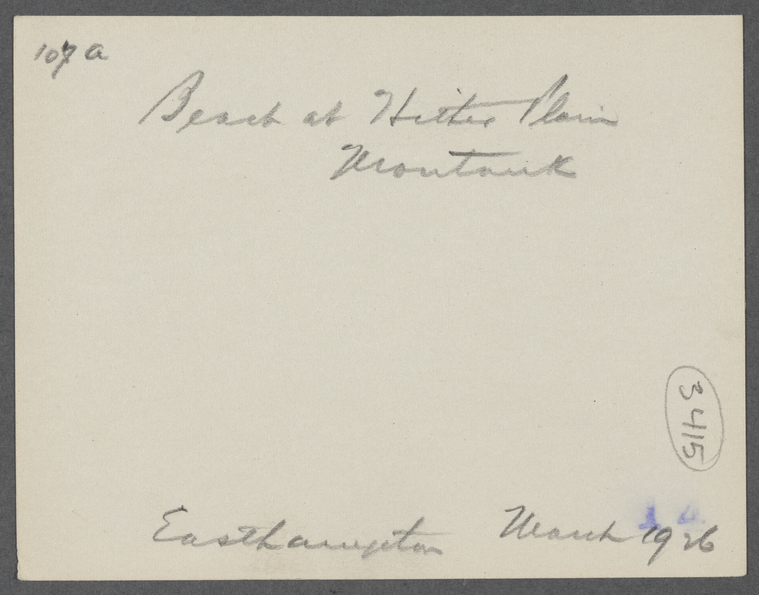 107 a
Beach at Hither Plain
Montauk
3415
Easthampton March 1926